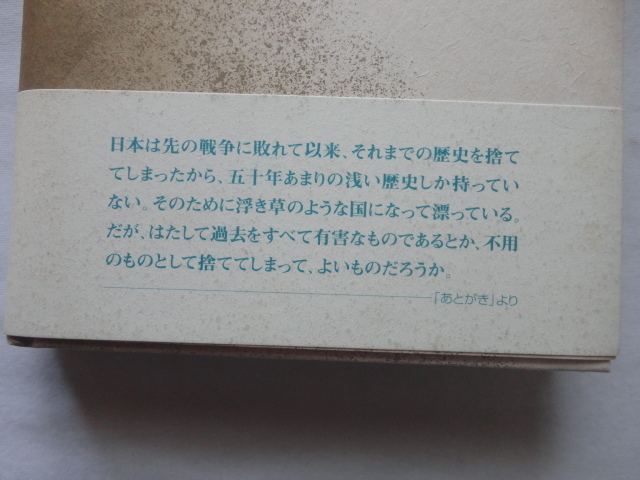 日本は先の戦争に敗れて以来、それまでの歴史を捨て
てしまったから、五十年あまりの浅い歴史しか持ってい
ない。そのために浮き草のような国になって漂っている。
だが、はたして過去をすべて有害なものであるとか、不用
のものとして捨ててしまって、よいものだろうか。
「あとがき」より